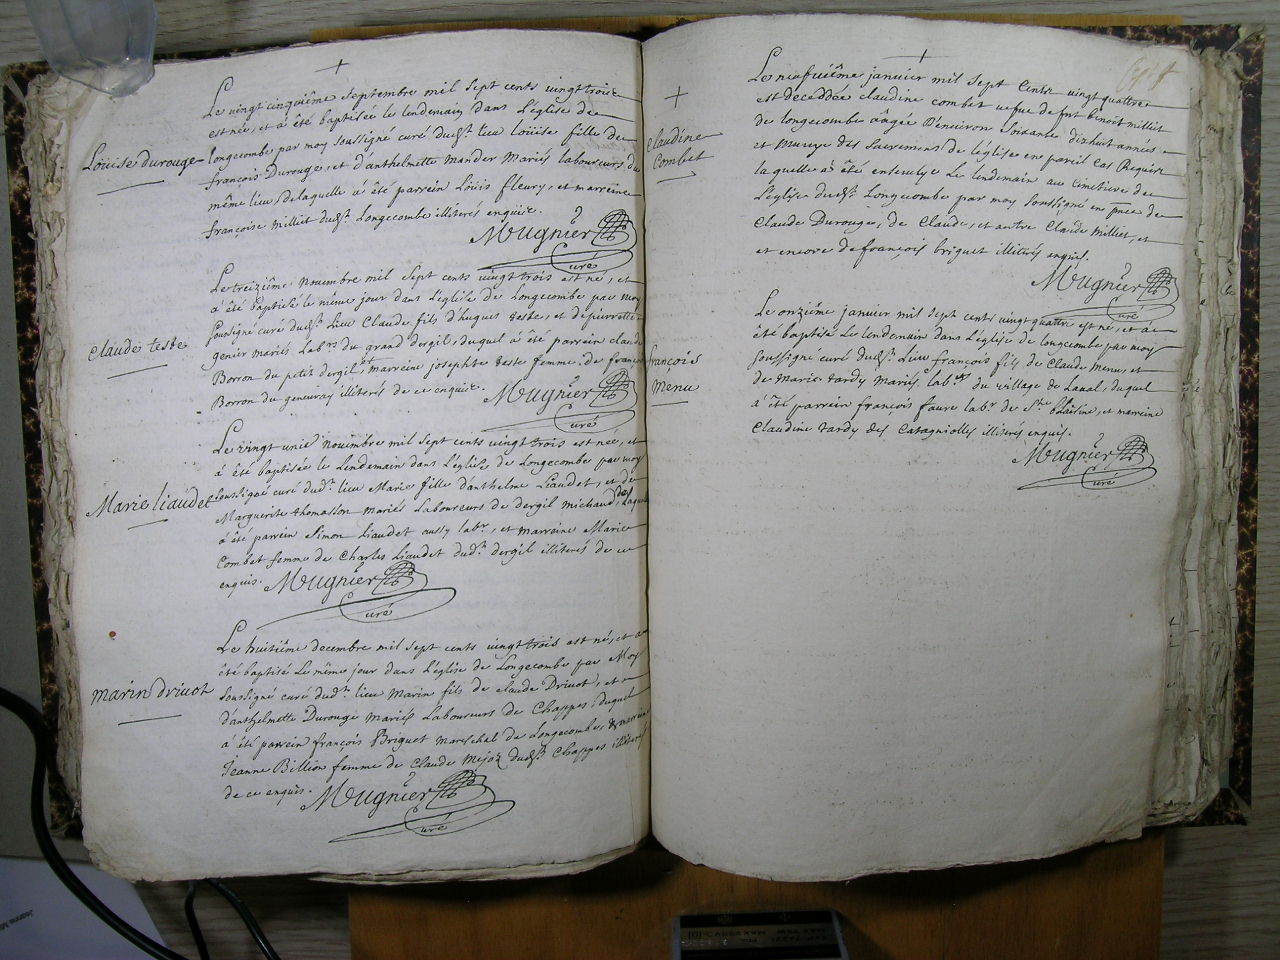 Louise durouge
Le vingt cinquiême septembre mil sept cents vingt trois
est née, et à été baptisée le lendemain dans L'église de
longecombe par moy soussigné curé dudt. lieu loüise fille de
françois Durouge, et d'anthelmette mander Mariés laboureurs du
même lieu, delaquelle a été parrein Loüis fleury, et marreine
françoise milliet dudt. Longecombe illiterés enquis.
Mugnier
curé
claude teste
Le treiziême nouembre mil sept cents vingt trois est né, et
à été baptisé le même jour dans L'église de Longecombe par moy
soussigné curé dudt. Lieu Claude fils d'hugues teste, et de pierrette
genier mariés Labrs. du grand dergil, duquel à été parrein claude
Borron du petit dergil et marreine josephte teste femme de françois
Borron du genevray illiterés de ce enquis.
Mugnier
curé
Marie liaudet
Le vingt uniê nouembre mil sept cents vingt trois est née, et
à été baptisée le Lendemain dans L'église de Longecombe par moy
soussigné curé dudt. lieu Marie fille d'anthelme Liaudet, et de
Marguerite thomasson mariés Laboureurs de dergil michaud de Laquelle
à été parrein Simon Liaudet aussy labr., et marreine Marie
Combet femme de Charles Liaudet dudt. dergil illiterés de ce
enquis.
Mugnier
curé
marin drivot
Le huitiême decembre mil sept cents vingt trois est né, et a
été baptisé Le même jour dans L'église de Longecombe par Moy
soussigné curé dudt. lieu Marin fils de claude Drivot, et
d'anthelmette Durouge Mariés Laboureurs de Chappes, duquel
à été parrein françois Briguet Mareschel de Longecombe, & marreine
Jeanne Billion femme de Claude Mejoz dudt. Chappes illiterés
de ce enquis.
Mugnier
curé
claudine
Combet
Le neufuiême janvier mil sept Cents vingt quattre
est deceddée claudine combet vefve de fut benoit milliet
de longecombe aagée d'enuiron soixante dixhuit années
et Munye des sacremens de l'église en pareil cas Requis
laquelle à été enseuelye Le lendemain au cimetiere de
L'église dudt. Longecombe par moy soussigné en pnce de
Claude Durouge, de Claude, et autre Claude Milliet, et
et encore de françois briguet illiterés enquis.
Mugnier
curé
françois
Menu
Le onziême janvier mil sept cents vingt quattre est né, et à
été baptisé Le lendemain dans L'église de longecombe par moy
soussigné curé dudt. Lieu françois fils de Claude Menu, et
de Marie tardy Mariés labrs. du village de Laual, duquel
à été parrein françois faure labr. de Ste. blaisine, et marreine
Claudine tardy des Catagniolles illiterés enquis.
Mugnier
curé